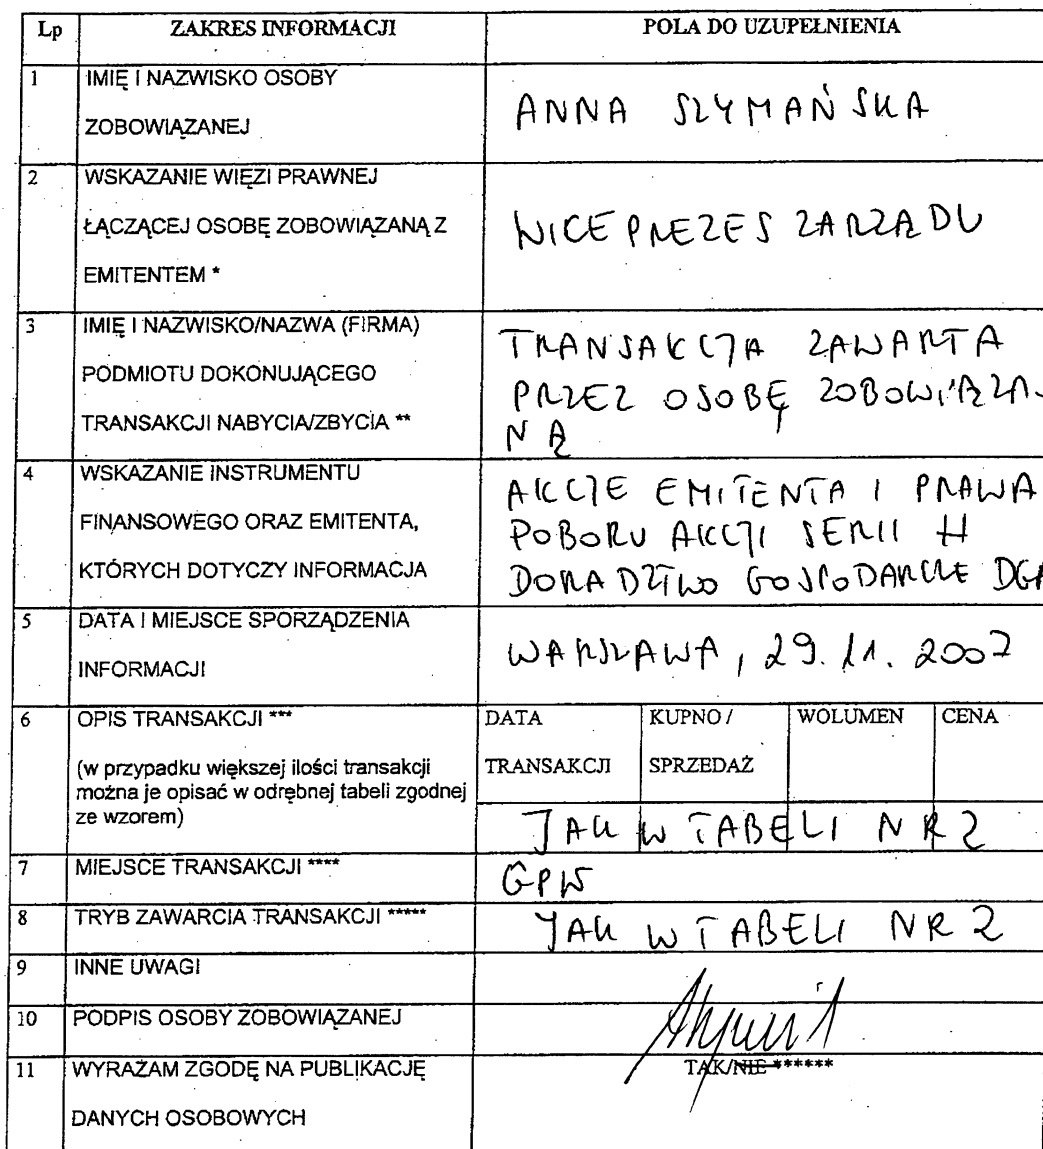 Lp ZAKRES INFORMACJI POLA DO UZUPEŁNIENIA
1 IMIĘ I NAZWISKO OSOBY
ZOBOWIĄZANEJ
ANNA SZYMAŃSKA
2 WSKAZANIE WIĘZI PRAWNEJ
ŁĄCZĄCEJ OSOBĘ ZOBOWIĄZANĄ Z
EMITENTEM *
WICEPREZES ZARZĄDU
3 IMIĘ I NAZWISKO/NAZWA (FIRMA)
PODMIOTU DOKONUJĄCEGO
TRANSAKCJI NABYCIA/ZBYCIA **
TRANSAKCJA ZAWARTA
PRZEZ OSOBĘ ZOBOWIĄZA-
NĄ
4 WSKAZANIE INSTRUMENTU
FINANSOWEGO ORAZ EMITENTA,
KTÓRYCH DOTYCZY INFORMACJA
AKCJE EMITENTA I PRAWA
POBORU AKCJI SERII H
DORADZTWO GOSPODARCZE DGA
5 DATA I MIEJSCE SPORZĄDZENIA
INFORMACJI
WARSZAWA, 29.11.2007
6 OPIS TRANSAKCJI ***
(w przypadku większej ilości transakcji
można je opisać w odrębnej tabeli zgodnej
ze wzorem)
DATA
TRANSAKCJI
KUPNO /
SPRZEDAŻ
WOLUMEN
CENA
JAK W TABELI NR 2
7 MIEJSCE TRANSAKCJI ****
GPW
8 TRYB ZAWARCIA TRANSAKCJI *****
JAK W TABELI NR 2
9 INNE UWAGI
10 PODPIS OSOBY ZOBOWIĄZANEJ
11 WYRAŻAM ZGODĘ NA PUBLIKACJĘ
DANYCH OSOBOWYCH
TAK/NIE ******